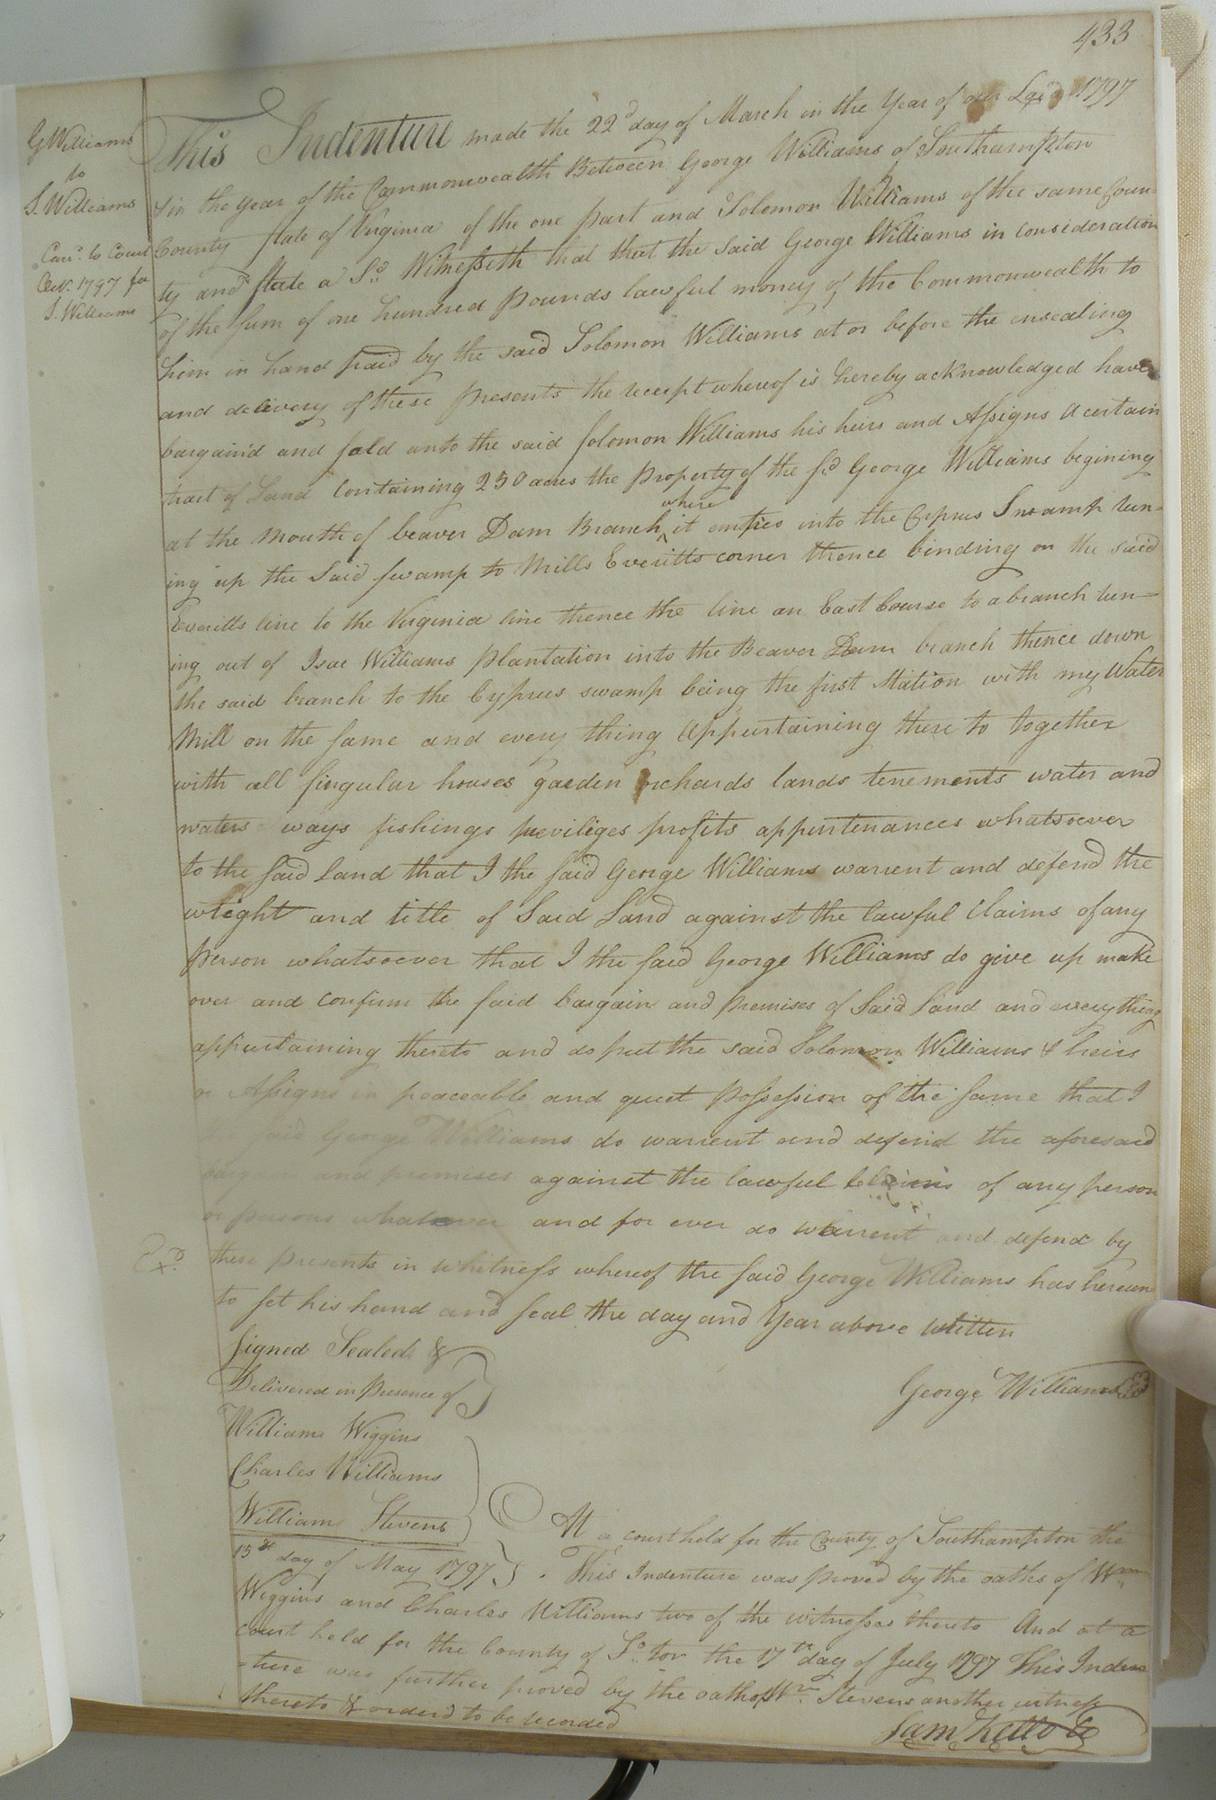 433
G Williams
to
S. Williams
Can.d to Court
Octr. 1797 for
S. Williams
This Indenture made the 22d day of March in the Year of our Lord 1797
& in the year of the Commonwealth Between George Williams of Southampton
County State of Virginia of the one part and Solomon Williams of the same Coun
ty and State a Sd. Witnesseth that that the said George Williams in consideration
of the sum of one hundred pounds lawful money of the Commonwealth to
him in hand paid by the said Solomon Williams at or before the ensealing
and delivery of these presents the receipt whereof is hereby acknowledged have
bargaind and sold unto the said Solomon Williams his heirs and Assigns a certain
tract of Land Containing 250 acres the Property of the sd George Williams begining
at the Mouth of beaver Dam Branch where it emties into the Cyprus Swamp run-
ing up the Said swamp to Mills Everitts corner thence binding on the said
Everitts line to the Virginia line thence the line an East Course to a branch run-
ing out of Isae Williams plantation into the Beaver Dam branch thence down
the said branch to the Cyprus swamp being the first Station with my Water
Mill on the same and every thing appurtaining there to together
with all singular houses garden orchards lands tenements water and
waters ways fishings previliges profits appurtenances whatsoever
to the said Land that I the said George Williams warrent and defend the
wright and title of Said Land against the lawful Claims of any
Person whatsoever that I the said George Williams do give up make
over and confirm the said bargain and premises of Said Land and everything
appurtaining thereto and do put the said Solomon Williams & heirs
or Assigns in peaceable and quet Possession of the same that I
said George Williams do warrent and defend the aforesaid
bargain and premises against the lawful Claims of any person
or persons whatsover and for ever do warrent and defend by
these presents in whitness whereof the said George Williams has hereun
to set his hand and seal the day and Year above written
Exd.
Signed Sealed &
Delivered in Presence of
George Williams
Williams Wiggins
Charles Williams
William Stevens
At a court held for the County of Southampton the
15th day of May 1797. This Indenture was proved by the oaths of Wm
Wiggins and Charles Williams two of the witnesses thereto And at a
court held for the County of So. ton the 17th day of July 1797 This Inden
-ture was further proved by the oath of Wm. Stevens another witness
thereto & orderd to be recorded
Sam Kello